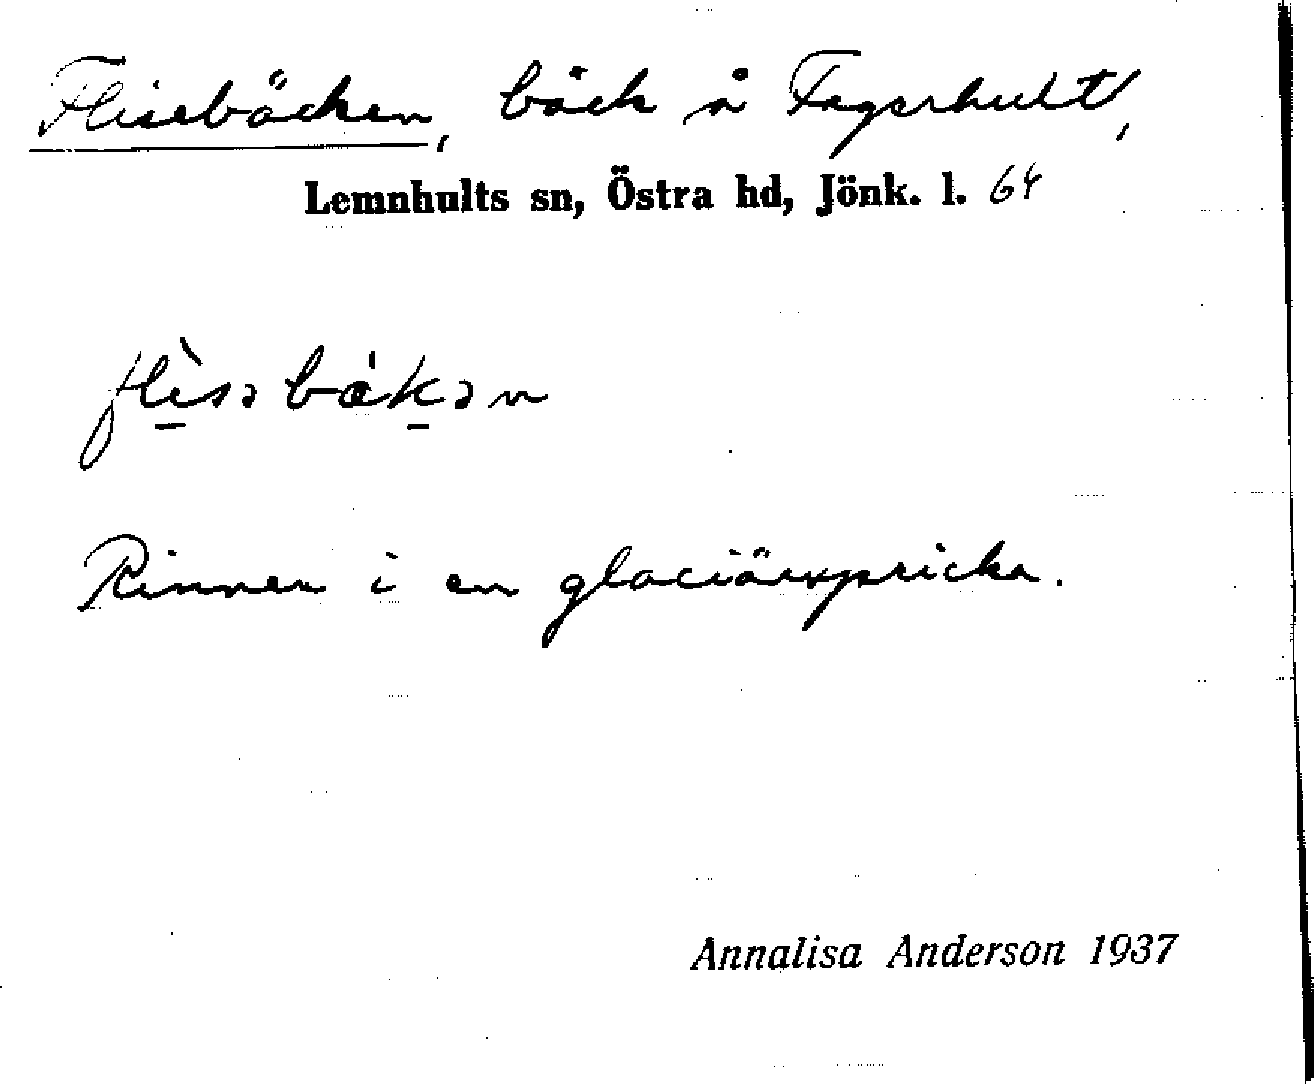 Flisebäcken, bäck å Fagerhult,
Lemnhults sn, Östra hd, Jönk. l. 64
flìsəbækən
Rinner i en glaciärspricka.
Annalisa Anderson 1937